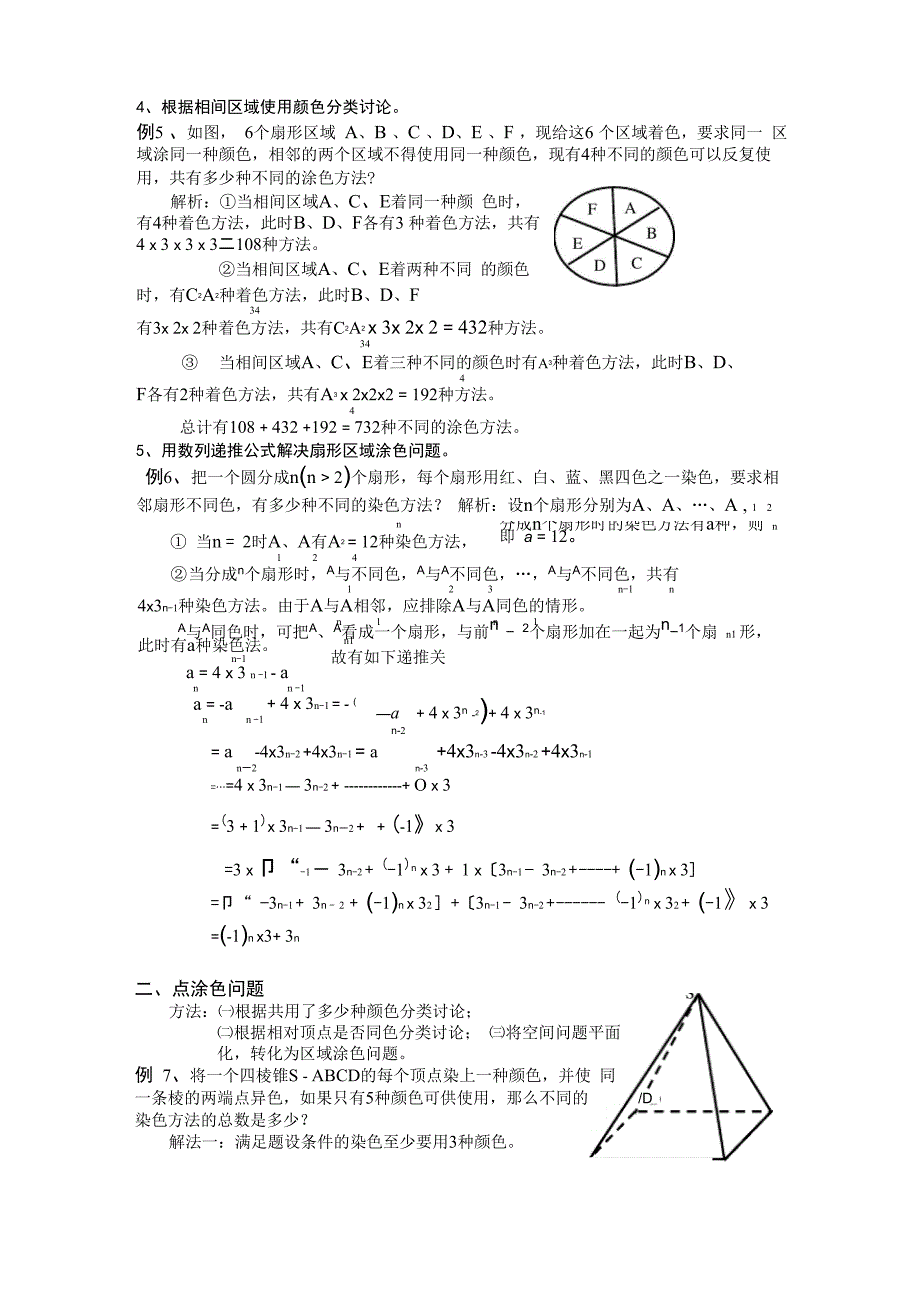 4、根据相间区域使用颜色分类讨论。
例5 、如图， 6个扇形区域 A、B 、C 、D、E 、F ，现给这6 个区域着色，要求同一 区
域涂同一种颜色，相邻的两个区域不得使用同一种颜色，现有4种不同的颜色可以反复使
用，共有多少种不同的涂色方法?
解析：①当相间区域A、C、E着同一种颜 色时，
有4种着色方法，此时B、D、F各有3 种着色方法，共有
4 x 3 x 3 x 3二108种方法。
F A
E B
D C
②当相间区域A、C、E着两种不同 的颜色
时，有C2A2种着色方法，此时B、D、F
34
有3x 2x 2种着色方法，共有C2A2 x 3x 2x 2 = 432种方法。
34
③ 当相间区域A、C、E着三种不同的颜色时有A3种着色方法，此时B、D、
4
F各有2种着色方法，共有A3 x 2x2x2 = 192种方法。
4
总计有108 + 432 +192 = 732种不同的涂色方法。
5、用数列递推公式解决扇形区域涂色问题。
例6、把一个圆分成n(n > 2)个扇形，每个扇形用红、白、蓝、黑四色之一染色，要求相
邻扇形不同色，有多少种不同的染色方法？ 解析：设n个扇形分别为A、A、…、A , 1 2
n 分成n个扇形时的染色方法有a种，则 n
① 当n = 2时A、A有A2 = 12种染色方法， 即 a = 12。
1 2 4
②当分成n个扇形时，A与A不同色，A与A不同色，…，A与A不同色，共有
1 2 3 n-1 n
4x3n-1种染色方法。由于A与A相邻，应排除A与A同色的情形。
n 1 n 1
A与A同色时，可把A、A看成一个扇形，与前n – 2个扇形加在一起为n–1个扇 n1 形，
此时有a种染色法。 n1 故有如下递推关
n-1
a = 4 x 3 n -1 - a
n n -1
a = -a + 4 x 3n-1 = - (
n n -1
—a + 4 x 3n -2)+ 4 x 3n-1
n-2
= a -4x3n-2 +4x3n-1 = a +4x3n-3 -4x3n-2 +4x3n-1
n—2 n-3
=…=4 x 3n-1 — 3n-2 + ------------+ O x 3
=(3 + 1)x 3n-1 — 3n—2 + + (-1》 x 3
=3 x 卩 “-1 — 3n-2 + (-1)n x 3 + 1 x〔3n-1 - 3n-2 +----+ (-1)n x 3］
=卩 “ -3n-1 + 3n - 2 + (-1)n x 32］+〔3n-1 - 3n-2 +------ (-1)n x 32 + (-1》 x 3
=(-1)n x3+ 3n
二、点涂色问题
方法：㈠根据共用了多少种颜色分类讨论；
㈡根据相对顶点是否同色分类讨论； ㈢将空间问题平面
化，转化为区域涂色问题。
例 7、将一个四棱锥S - ABCD的每个顶点染上一种颜色，并使 同
一条棱的两端点异色，如果只有5种颜色可供使用，那么不同的
染色方法的总数是多少？
解法一：满足题设条件的染色至少要用3种颜色。
S
/D_